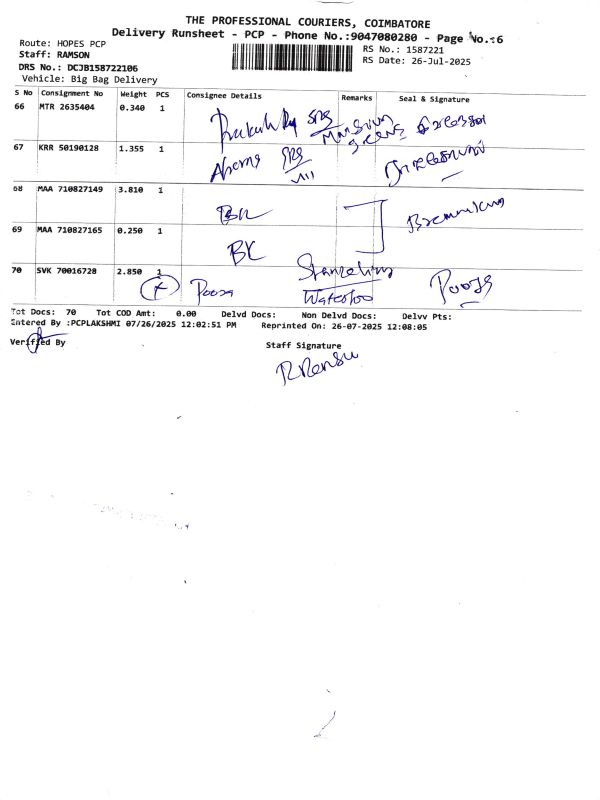 THE PROFESSIONAL COURIERS, COIMBATORE
Delivery Runsheet - PCP - Phone No.:9047080280 - Page No.:6
Route: HOPES PCP
Staff: RAMSON
DRS No.: DCJB158722106
Vehicle: Big Bag Delivery
RS No.: 1587221
RS Date: 26-Jul-2025
S No Consignment No Weight PCS Consignee Details Remarks Seal & Signature
66 MTR 2635404 0.340 1
67 KRR 50190128 1.355 1
VIII
68 MAA 710827149 3.810 1
69 MAA 710827165 0.250 1
BK
70 SVK 70016728 2.850 1 Pooja
Waterloo
Pooja
Tot Docs: 70 Tot COD Amt: 0.00 Delvd Docs: Non Delvd Docs: Delvv Pts:
Entered By :PCPLAKSHMI 07/26/2025 12:02:51 PM Reprinted On: 26-07-2025 12:08:05
Verified By Staff Signature